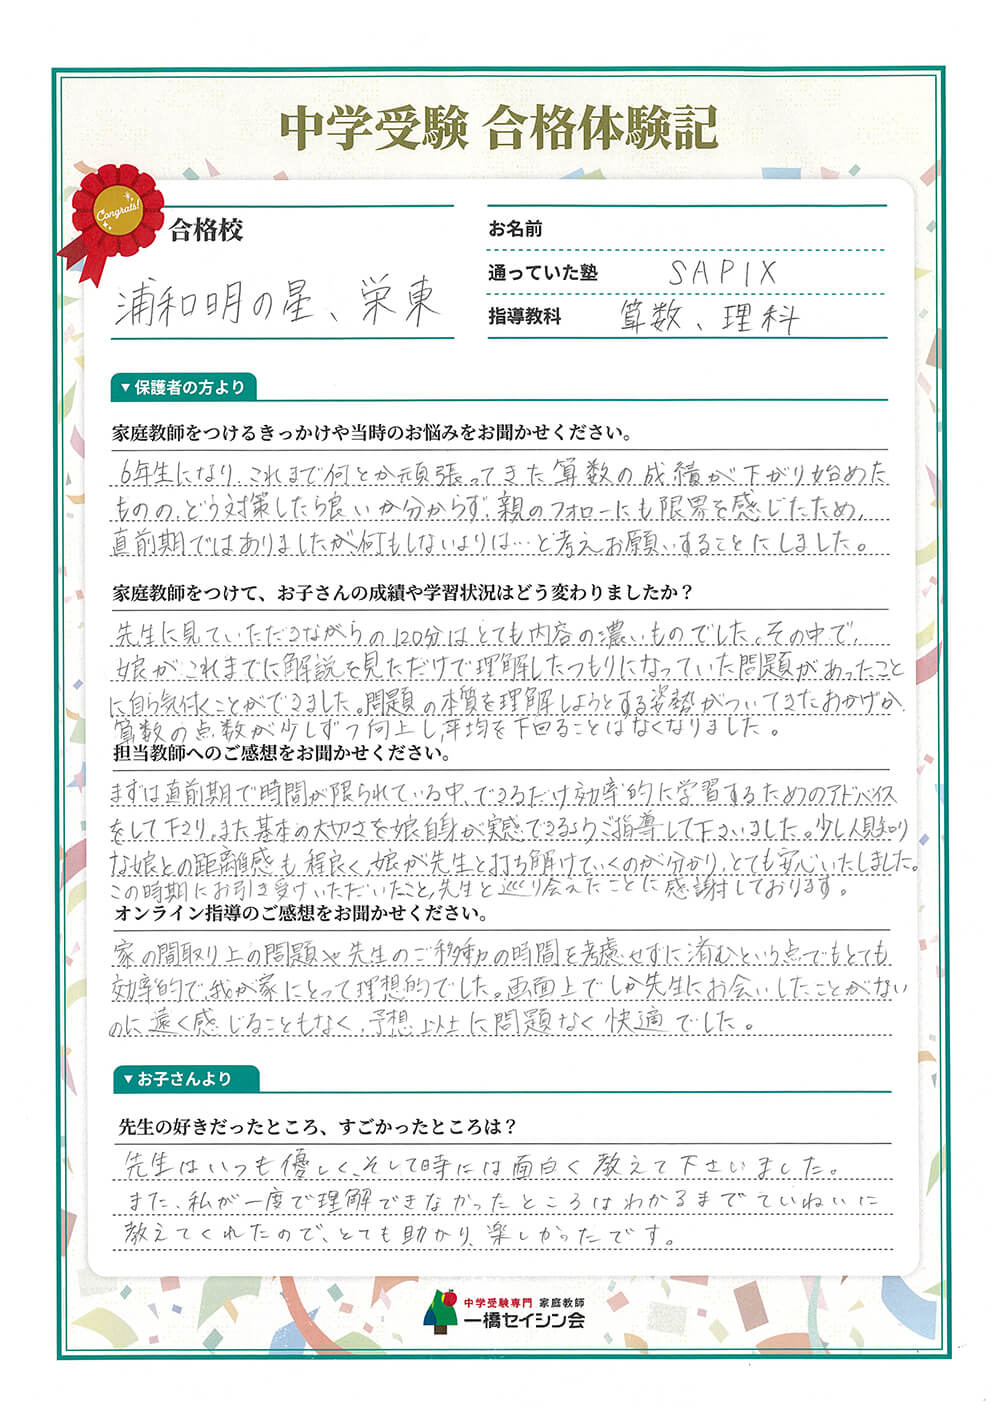 中学受験 合格体験記
Congrats!
合格校
浦和明の星、栄東
お名前
通っていた塾 SAPIX
指導教科 算数、理科
▼保護者の方より
家庭教師をつけるきっかけや当時のお悩みをお聞かせください。
6年生になり、これまで何とか頑張ってきた算数の成績が下がり始めた
ものの、どう対策したら良いか分からず、親のフォローにも限界を感じたため、
直前期ではありましたが何もしないよりは…と考えお願いすることにしました。
家庭教師をつけて、お子さんの成績や学習状況はどう変わりましたか？
先生に見ていただきながらの120分はとても内容の濃いものでした。その中で、
娘がこれまでに解説を見ただけで理解したつもりになっていた問題があったこと
に自ら気付くことができました。問題の本質を理解しようとする姿勢がついてきたおかげか、
算数の点数が少しずつ向上し、平均を下回ることはなくなりました。
担当教師へのご感想をお聞かせください。
まずは直前期で時間が限られている中、できるだけ効率的に学習するためのアドバイス
をして下さり、また基本の大切さを娘自身が実感できるようご指導して下さいました。少し人見知り
な娘との距離感も程良く、娘が先生と打ち解けていくのが分かり、とても安心いたしました。
この時期にお引き受けいただいたこと、先生と巡り会えたことに感謝しております。
オンライン指導のご感想をお聞かせください。
家の間取り上の問題や先生のご移動の時間を考慮せずに済むという点でもとても
効率的で、我が家にとって理想的でした。画面上でしか先生にお会いしたことがない
のに遠く感じることもなく、予想以上に問題なく快適でした。
▼お子さんより
先生の好きだったところ、すごかったところは？
先生はいつも優しく、そして時には面白く教えて下さいました。
また、私が一度で理解できなかったところはわかるまでていねいに
教えてくれたので、とても助かり、楽しかったです。
中学受験専門 家庭教師
一橋セイシン会